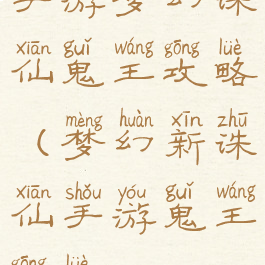 手游梦幻诛
xiān guǐ wáng gōng lüè
仙鬼王攻略
mèng huàn xīn zhū
（梦幻新诛
xiān shǒu yóu guǐ wáng
仙手游鬼王
gōng lüè